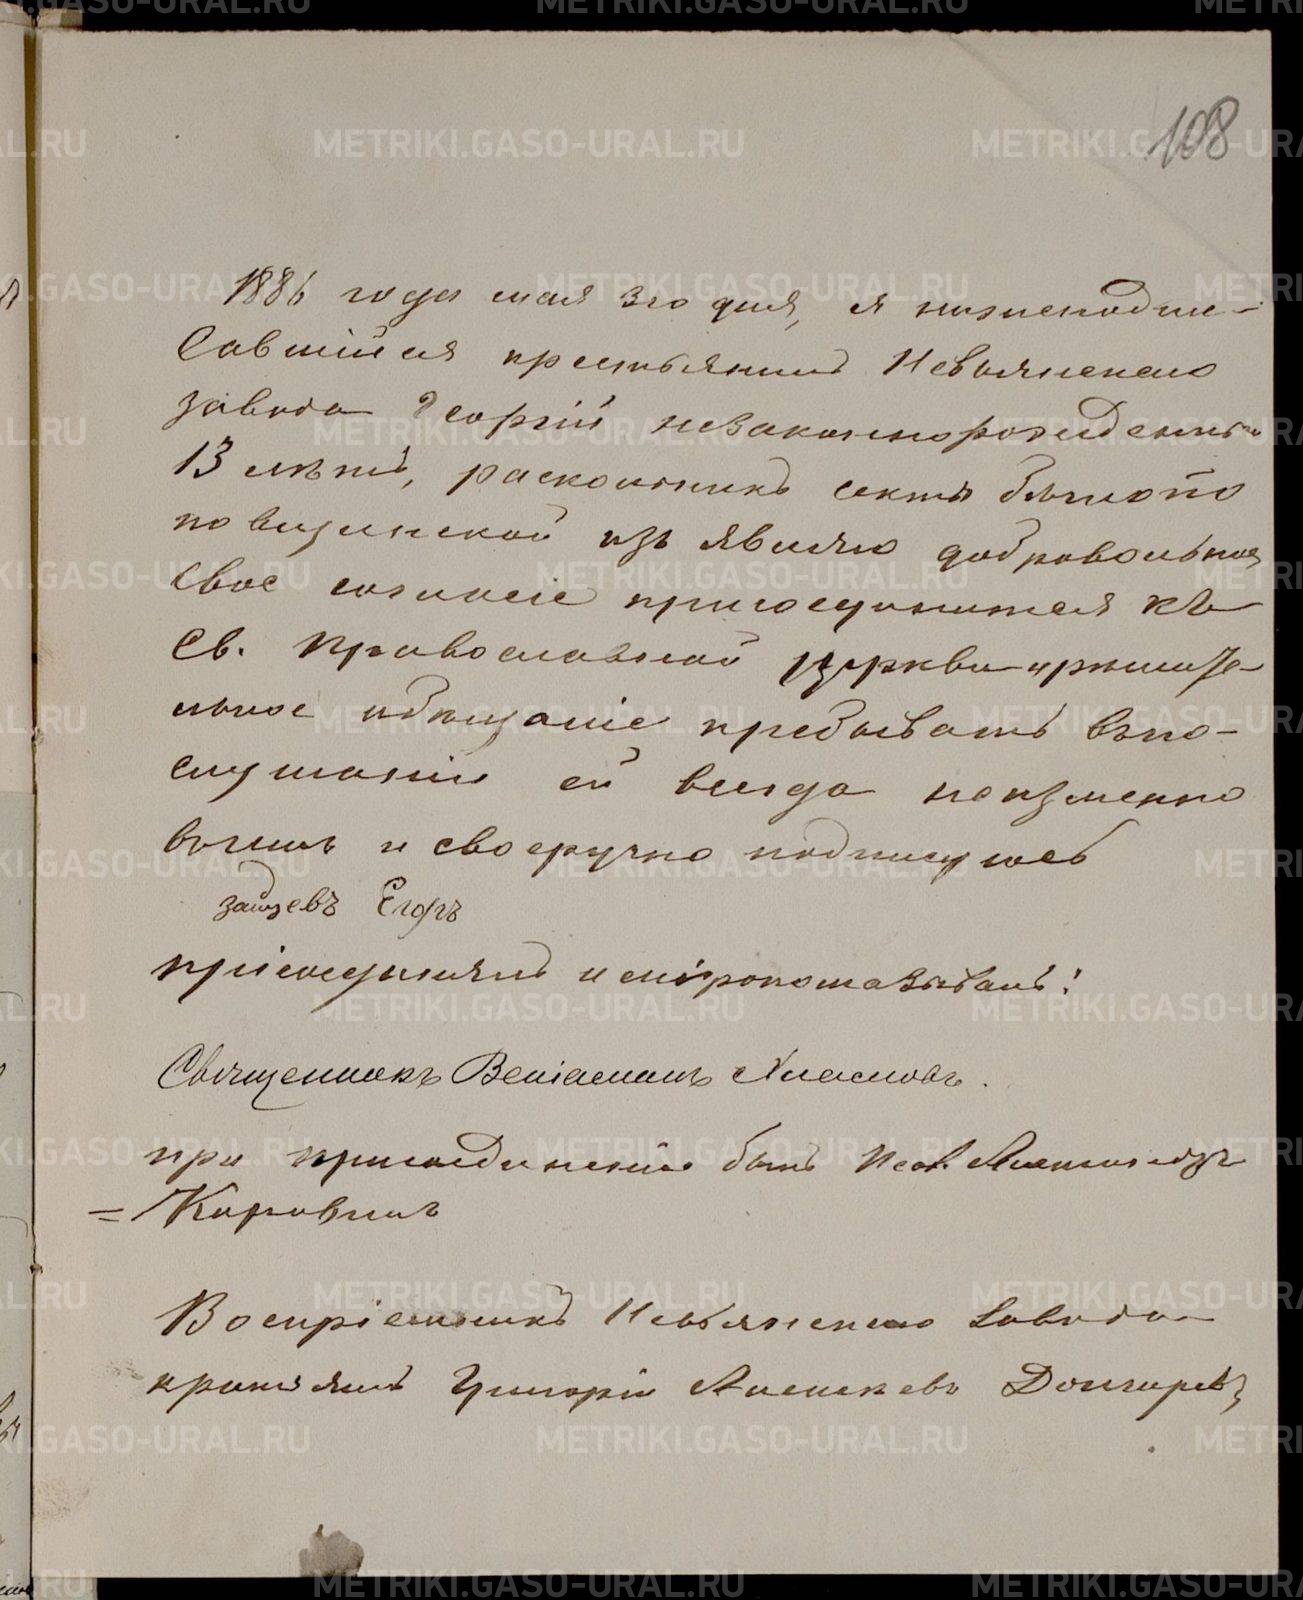 108
1886 года мая 3го дня, я нижеподпи-
савшійся крестьянинъ Невьянскаго
завода Георгій незаконнорожденный
13 лѣтъ, раскольникъ секты бѣгло по
повщинской изъявляю добровольное
свое согласіе присоединится къ
Св. Православной церкви и рѣшите-
льное обѣщаніе пребывать въ по-
слушаніи ей всегда неизменно
въ чемъ и своеручно подписуюсь
зайцевъ Егоръ
присоединялъ и мѵропомазывалъ:
Священникъ Веніаминъ
при присоединеніи былъ Псал. Александръ
= Коровинъ
Воспріемникъ Невьянскаго завода
крестьянъ Григорій Алексеевъ